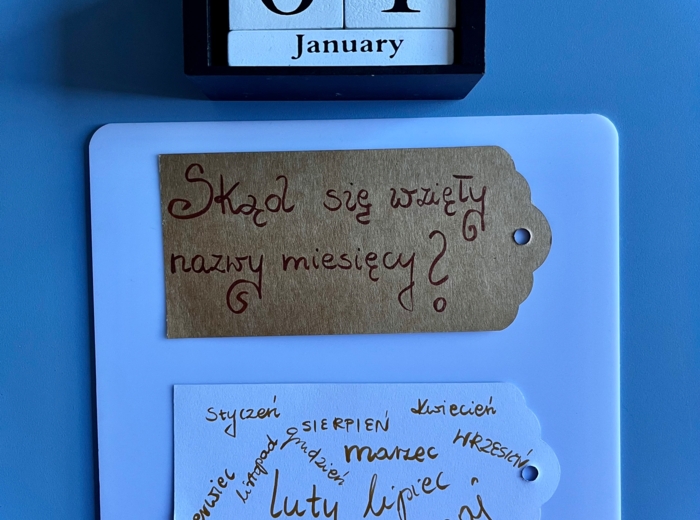 January
Skąd się wzięły
nazwy miesięcy?
styczeń
kwiecień
SIERPIEŃ
WRZESIEŃ
marzec
listopad
grudzień
luty
lipiec